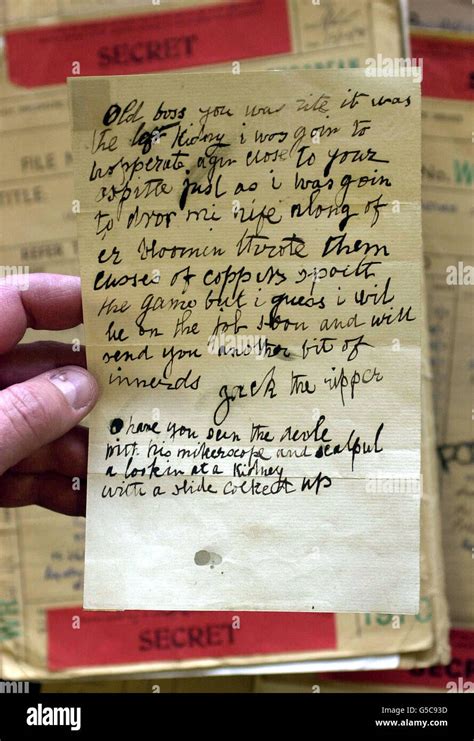 SECRET
FILE
TITLE.
REFER
Old boss you was rite it was
the left kidny i was goin to
hopperate agin close to your
ospitle just as i was goin
to dror mi nife along of
er bloomin throte them
cusses of coppers spoilt
the game but i guess i wil
be on the job soon and will
send you another bit of
innerds Jack the ripper
O have you seen the devle
with his mikerscope and scalpul
a lookin at a Kidney
with a slide cocked up
SECRET
alamy
Image ID: G5C93D
www.alamy.com